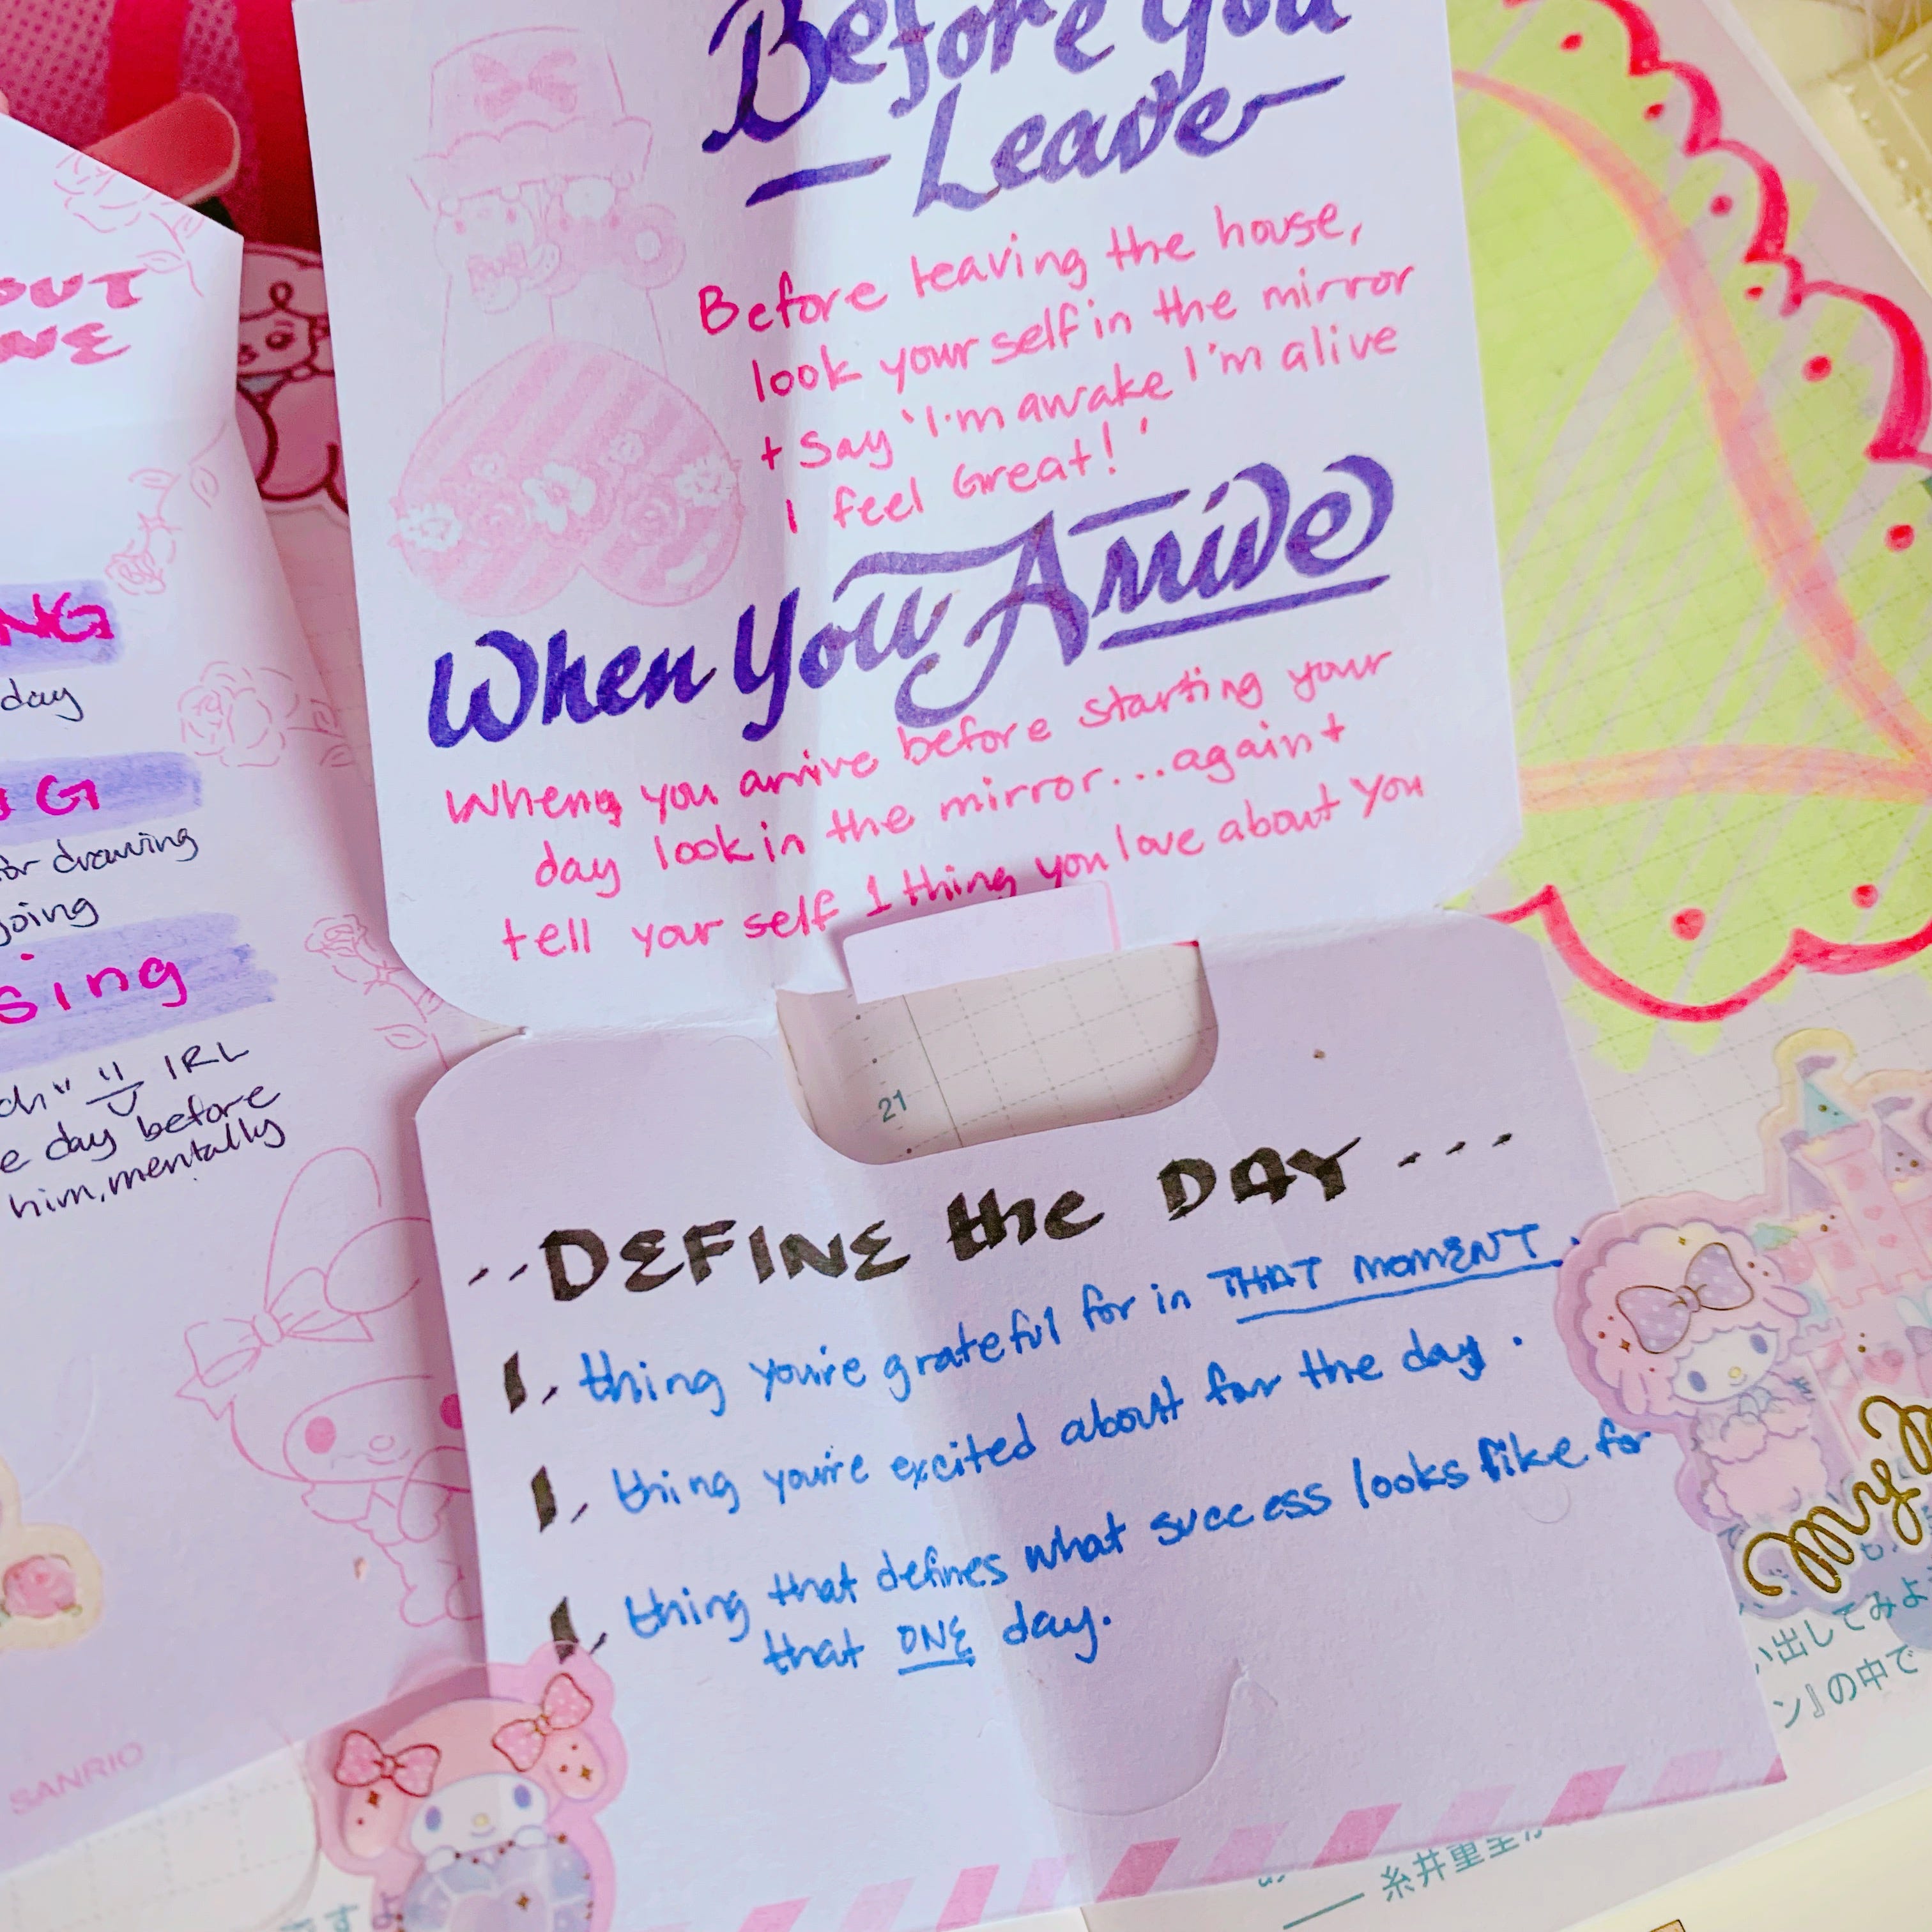 Before You
Leave
Before leaving the house,
look your self in the mirror
+ Say 'I'm awake I'm alive
I feel Great!'
When You Arrive
When you arrive before starting your
day look in the mirror...again +
tell your self 1 thing you love about you
DEFINE the DAY
1, thing you're grateful for in THAT MOMENT.
1, thing you're excited about for the day.
1, thing that defines what success looks like for
that ONE day.
21
day
for drawing
going
IRL
day before
him, mentally
SANRIO
My
い出してみよ
ン』の中で
— 糸井重里
ですよ